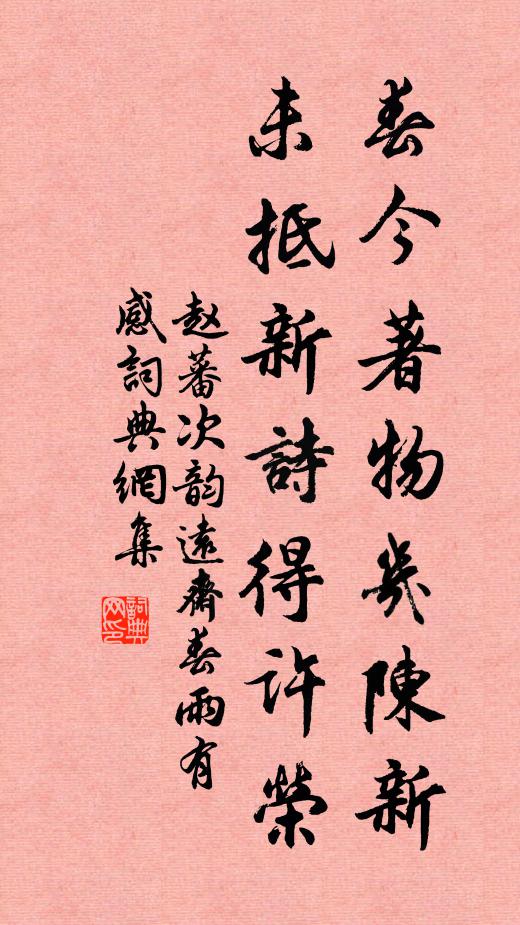 春今著物幾陳新
未抵新詩得許榮
赵蕃次韵遠齋春雨有
感詞典網集
詞典网印